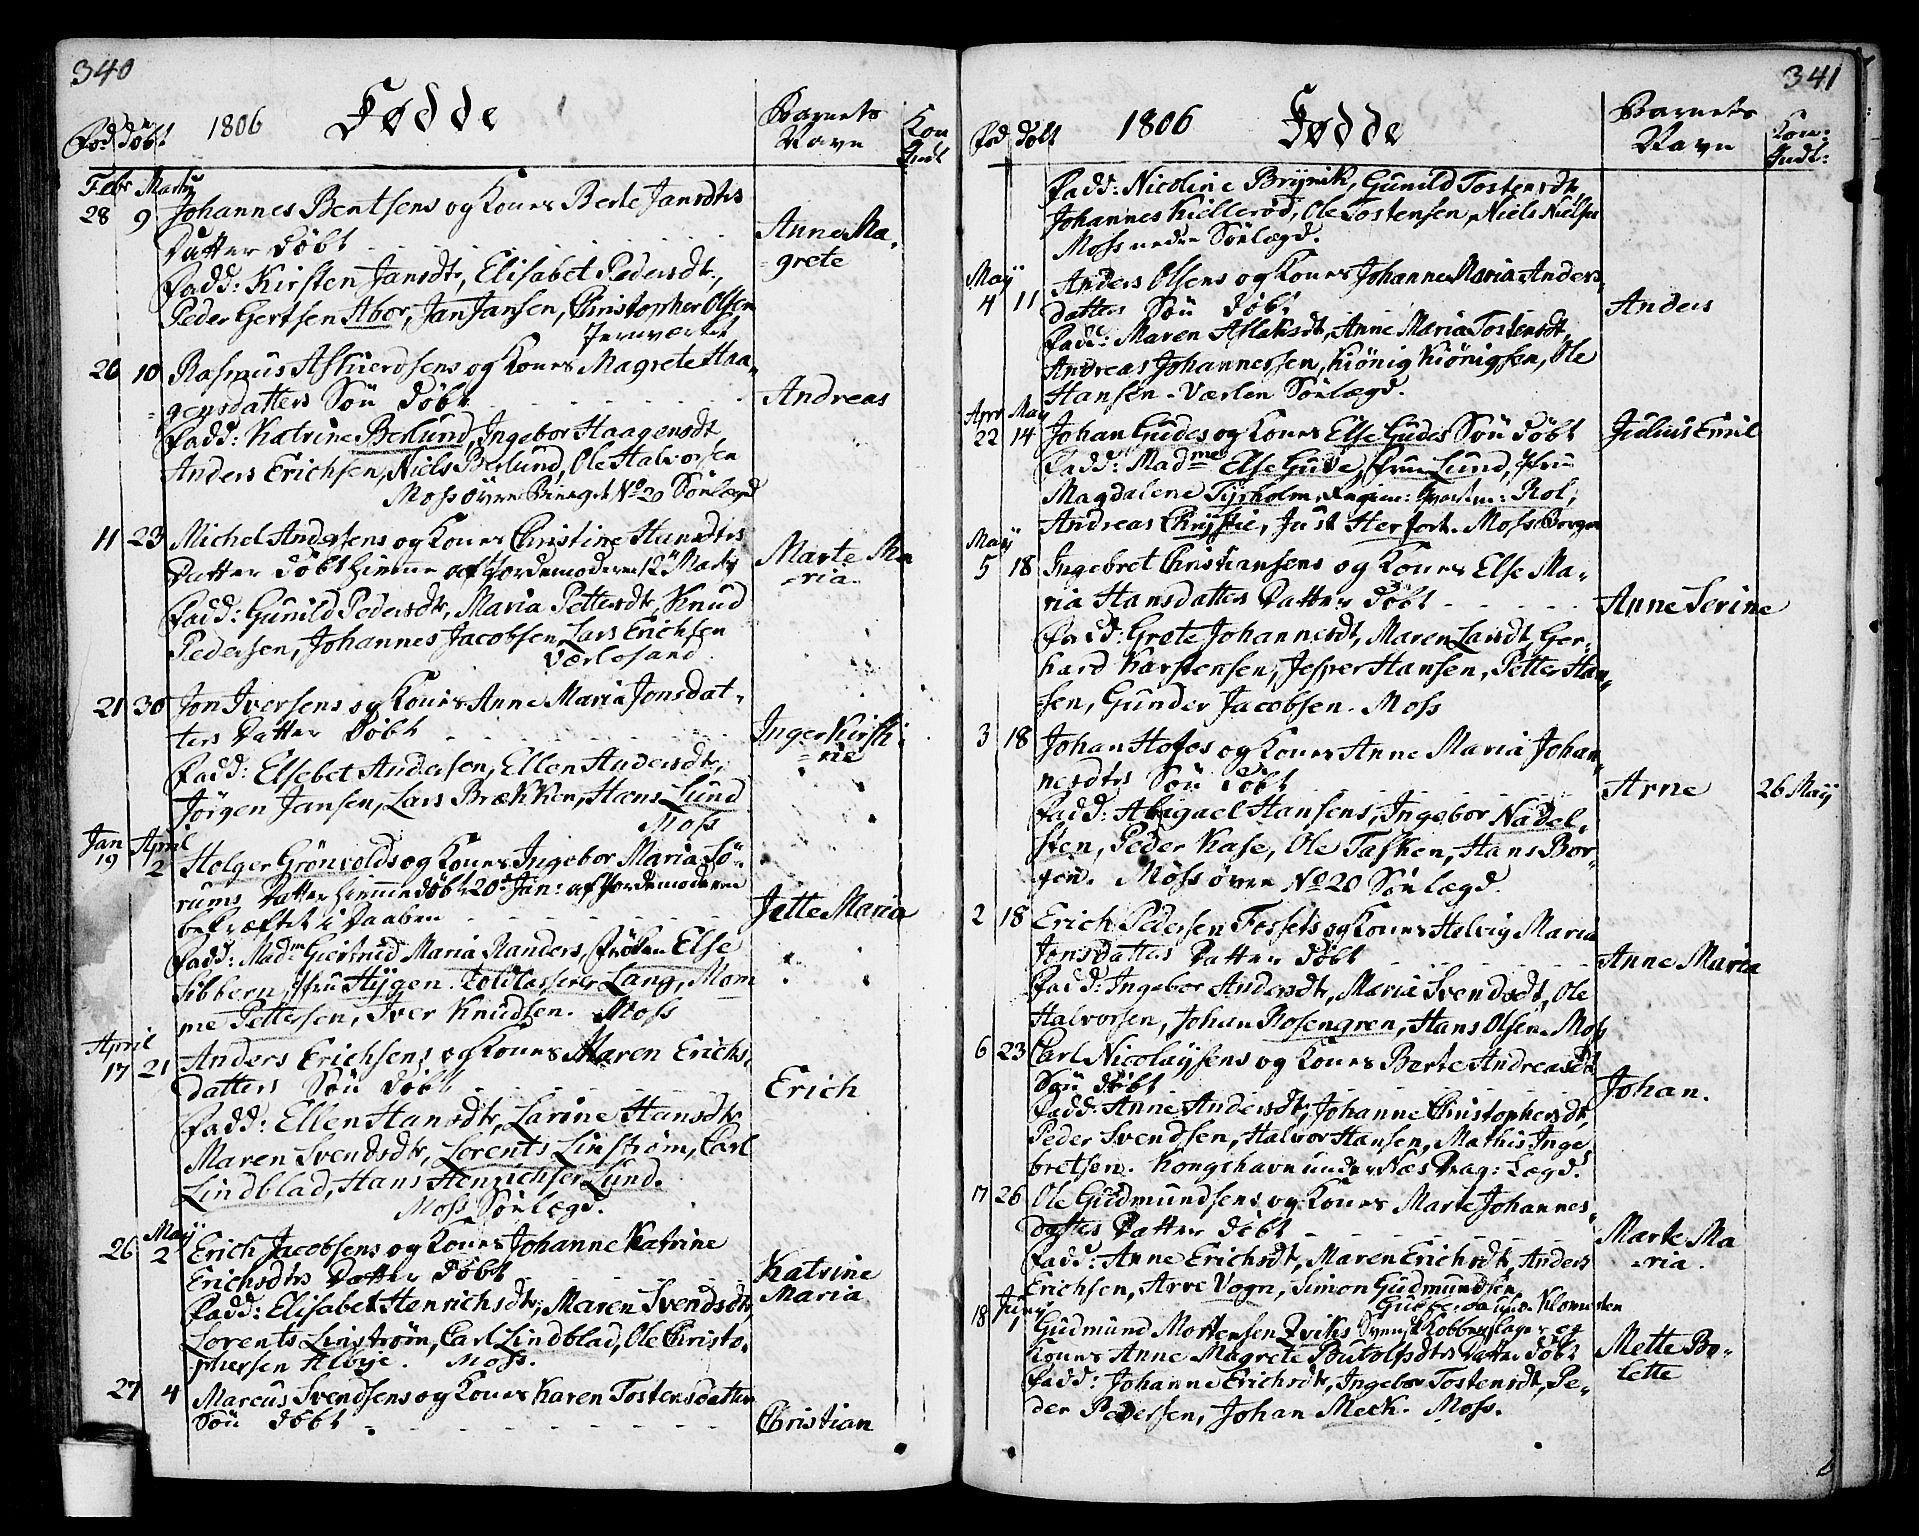 340
Fød Døbt 1806 Fødde Barnets Navn Kon Indt
Febr Martij
28 9 Johannes Bentsens og Kones Berte Jansdtrs
Datter Døbt Anne Ma-
grete
Fadd: Kirsten Jansdtr, Elisabet Pedersdtr,
Peder Gertsen Abor, Jan Jansen, Christopher Olsen
Jernværket
20 10 Rasmus Askierdsens og Kones Magrete Haa-
gensdatters Søn Døbt Andreas
Fadd: Katrine Berlund, Ingebor Haagensdt,
Anders Erichsen, Niels Berlund, Ole Halvorsen
Moss øvre Bierget No 20 Sønlægd
11 23 Michel Andersens og Kones Christine Hansdtrs
Datter Døbt hiemme af Jordemoderen 12 Martij Marte Ma
ria
Fadd: Gunild Pedersdtr, Maria Pettersdtr, Knud
Pedersen, Johannes Jacobsen, Lars Erichsen
Værlesand
21 30 Jon Iversens og Kones Anne Maria Jonsdat-
ters Datter Døbt Inger Kirsti-
ne
Fadd: Elsebet Andersen, Ellen Andersdtr,
Jørgen Jansen, Lars Brækken, Hans Lund
Moss
Jan April
19 2 Holger Grønvolds og Kones Ingebor Maria Sø-
rums Datter hiemmedøbt 20 Jan: af Jordemoderen
bekræftet i Daaben Jette Maria
Fadd: Madm Giertrud Maria Randers, Frøken Else
Sibbern, Fru Hygen, Toldkasserer Lang, Mom
me Pettersen, Iver Knudsen. Moss
April
17 21 Anders Erichsens og Kones Maren Erichs-
datters Søn Døbt Erich
Fadd: Ellen Hansdtr, Larine Hansdtr
Maren Svendsdtr, Lorents Linstrøm, Carl
Lindblad, Hans Henrichsen Lund.
Moss Sønlægd.
May
26 2 Erich Jacobsens og Kones Johanne Katrine
Erichsdtrs Datter Døbt Katrine
Maria
Fadd: Elisabet Henrichsdtr, Maren Svendsdtr,
Lorents Linstrøm, Carl Lindblad, Ole Christo-
phersen Helvje. Moss.
27 4 Marcus Svendsens og Kones Karen Tostensdatters
Søn Døbt Christian
341
Fød Døbt 1806 Fødde Barnets Navn Kon: Indt:
Fadd: Nicoline Brynik, Gunild Tostensdt,
Johannes Kiellerød, Ole Tostensen, Niels Nielsen
Moss nedre Sønlægd.
May
4 11 Anders Olsens og Kones Johanne Maria Anders-
datters Søn Døbt Anders
Fadd: Maren Aslaksdt, Anne Maria Tostensdt,
Andreas Johannessen, Kiönig Kiönigsen, Ole
Hansen. Værlen Sønlægd.
Apr May
22 14 Johan Gudes og Kones Else Gudes Søn Døbt Julius Emil
Fadd: Madme Else Gude, Frue Lund, Fru
Magdalene Tyrholm, Regim: Qvartm: Rol,
Andreas Chrystie, Just Herfort. Moss Borger
May
5 18 Ingebret Christiansens og Kones Else Ma-
ria Hansdatters Datter Døbt Anne Serine
Fadd: Grete Johannesdt, Maren Larsdt, Ger-
hard Karstensen, Jesper Hansen, Petter Han-
sen, Gunder Jacobsen. Moss
3 18 Johan Hofos og Kones Anne Maria Johan-
nesdtrs Søn Døbt Arne 26 May
Fadd: Abiguel Hansens, Ingebor Nadel-
sten, Peder Kase, Ole Tasken, Hans Bor-
gen. Moss øvre No 20 Sønlægd.
2 18 Erich Pedersen Fossets og Kones Helvig Maria
Jonsdatters Datter Døbt Anne Maria
Fadd: Ingebor Andersdtr, Maria Svendsdt, Ole
Halvorsen, Johan Rosengren, Hans Olsen. Moss
6 23 Carl Nicolaysens og Kones Berte Andreasdt
Søn Døbt Johan.
Fadd: Anne Andersdtr, Johanne Christophersdtr,
Peder Svendsen, Halvor Hansen, Mathis Inge
bretsen. Kongshavn under Næs Drag: Lægd.
17 26 Ole Gudmundsens og Kones Marte Johannes-
datters Datter Døbt Marte Ma
ria.
Fadd: Anne Erichsdt, Maren Erichsdt, Anders
Erichsen, Arve Vogn, Simon Gudmundsen
Juny
18 1 Gudmund Mortensen Qviks Svensk Kobberslager og
Kones Anne Magrete Butolfsdtrs Datter Døbt Mette Bo-
lette
Fadd: Johanne Erichsdt, Ingebor Tostensdt, Pe-
der Pedersen, Johan Meck. Moss.